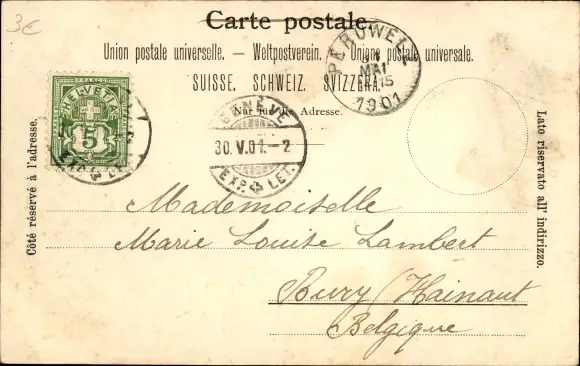 3€
Carte postale.
Union postale universelle. — Weltpostverein. — Unione postale universale.
SUISSE. SCHWEIZ. SVIZZERA.
Nur für die Adresse.
PERUWELZ
MAI
15
1901
HELVETIA
5
GENÈVE
30.V.01.-2
EXP. LET.
Côté réservé à l'adresse.
Lato riservato all' indirizzo.
Mademoiselle
Marie Louise Lambert
Bury (Hainaut
Belgique